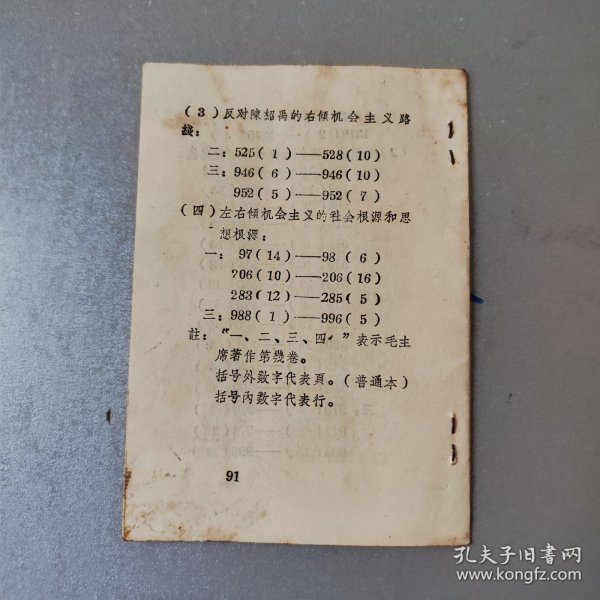 (3)反对陳紹禹的右傾机会主义路
綫:
二:525(1)——528(10)
三:946(6)——946(10)
952(5)——952(7)
(四)左右傾机会主义的社会根源和思
想根源:
一:97(14)——98(6)
206(10)——206(16)
283(12)——285(5)
三:988(1)——996(5)
註:“一、二、三、四”表示毛主
席著作第幾卷。
括号外数字代表頁。(普通本)
括号內数字代表行。
91
孔夫子旧書网
www.kongfz.com